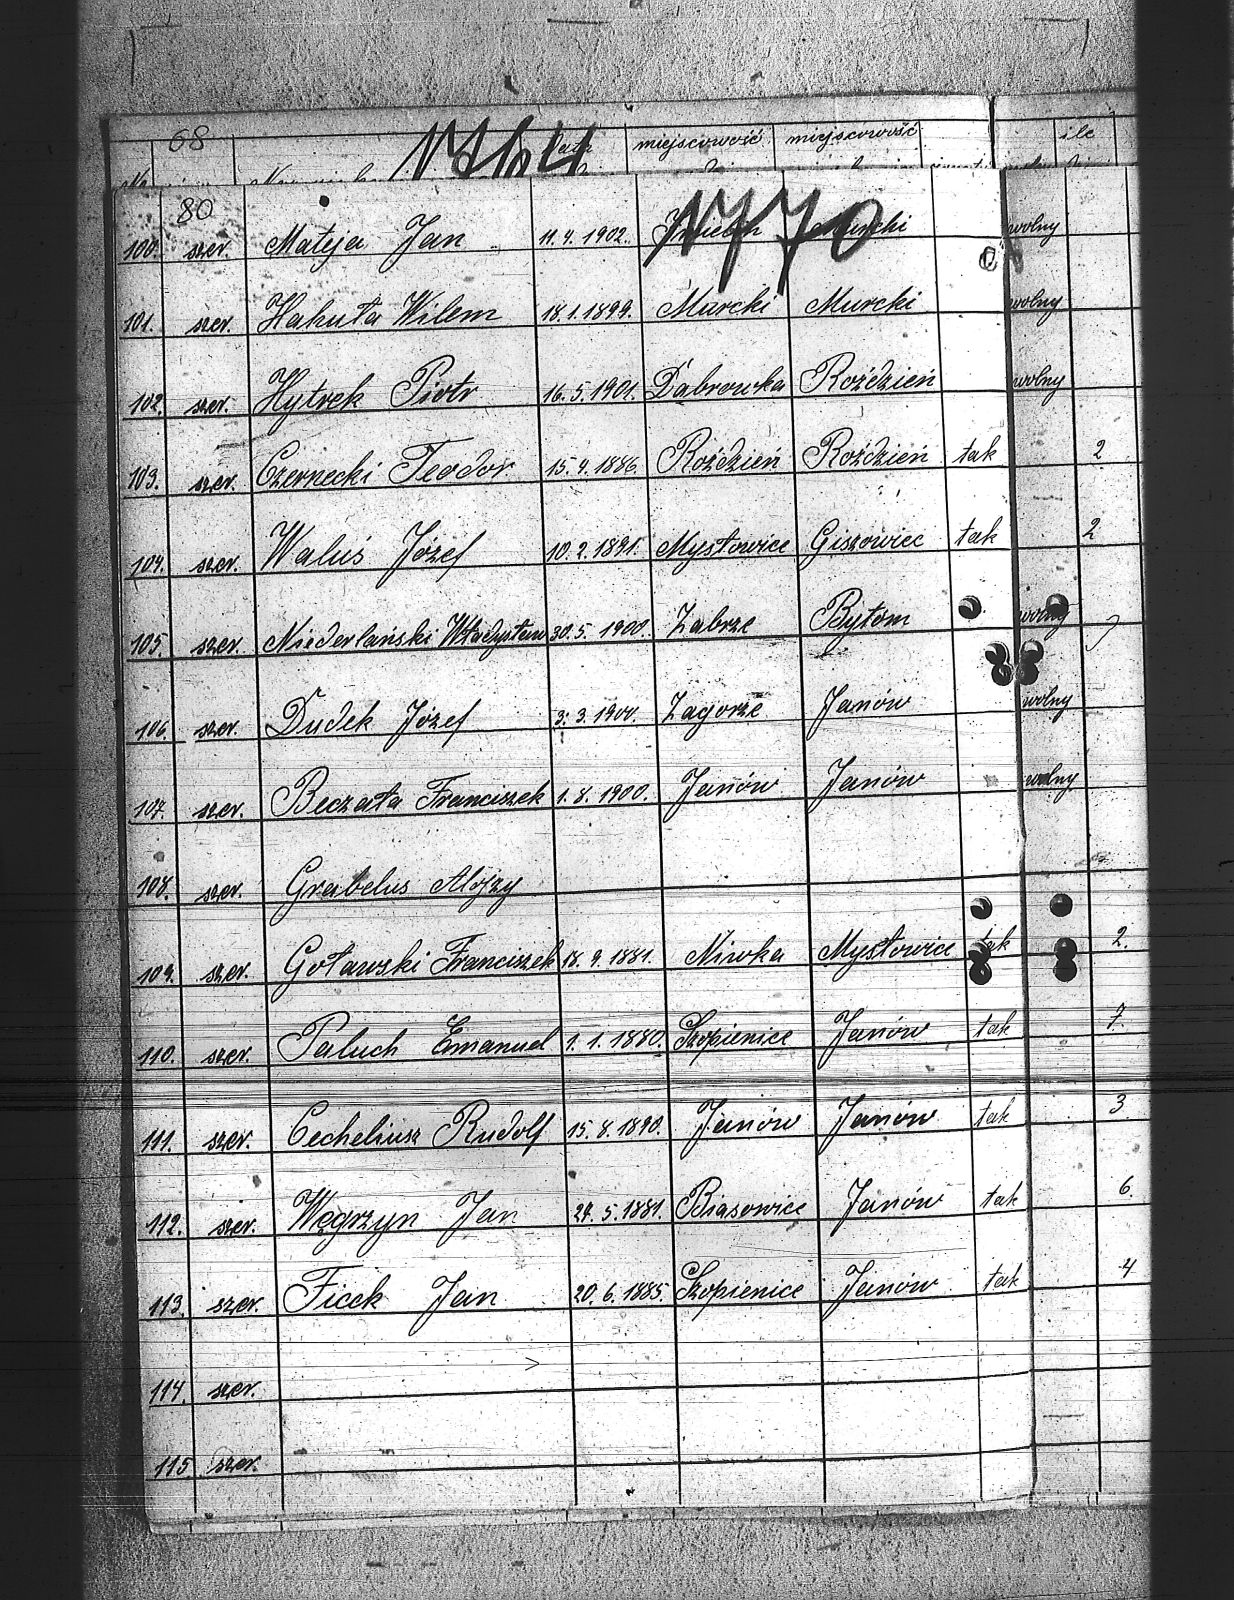 68
1764
miejscowość miejscowość ile
80
1770
100. szer. Mateja Jan 11.4.1902. Murcki wolny
101. szer. Hakuła Wilem 18.1.1899. Murcki Murcki wolny
102. szer. Hytrek Piotr 16.5.1901. Dąbrowka Roździeń wolny
103. szer. Czernecki Teodor 15.4.1886. Roździeń Roździeń tak 2
104. szer. Waluś Józef 10.2.1891. Mysłowice Giszowiec tak 2
105. szer. Niederlański Władysław 30.5.1900. Zabrze Bytom wolny
106. szer. Dudek Józef 3.3.1900. Zagorze Janów wolny
107. szer. Beczała Franciszek 1.8.1900. Janów Janów wolny
108. szer. Grabelus Alojzy
109. szer. Goławski Franciszek 18.9.1881. Niwka Mysłowice tak 2.
110. szer. Paluch Emanuel 1.1.1880. Szopienice Janów tak 7.
111. szer. Cecheliusz Rudolf 15.8.1890. Janów Janów tak 3
112. szer. Węgrzyn Jan 24.5.1881. Biasowice Janów tak 6.
113. szer. Ficek Jan 20.6.1885. Szopienice Janów tak 4
114. szer.
115 szer.